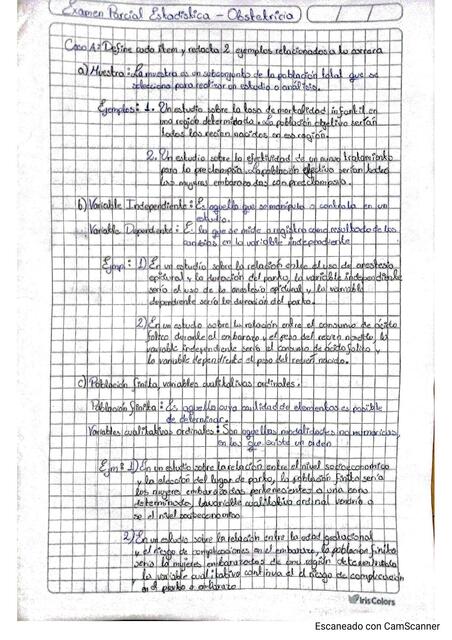 Examen Parcial Estadística - Obstetricia
Caso A: Define cada ítem y redacta 2 ejemplos relacionados a tu carrera
a) Muestra: La muestra es un subconjunto de la población total que se
selecciona para realizar un estudio o análisis.
Ejemplos: 1. Un estudio sobre la tasa de mortalidad infantil en
una región determinada. La población objetivo serían
todos los recien nacidos en esa región.
2. Un estudio sobre la efectividad de un nuevo tratamiento
para la preclampsia. La población objetivo serían todas
las mujeres embarazadas con preeclampsia.
b) Variable Independiente: Es aquella que se manipula o controla en un
estudio.
Variable Dependiente: Es la que se mide o registra como resultado de los
cambios en la variable independiente
Ejmp: 1) En un estudio sobre la relación entre el uso de anestesia
epidural y la duración del parto, la variable independiente
sería el uso de la anestesia epidural y la variable
dependiente sería la duración del parto.
2) En un estudio sobre la relación entre el consumo de ácido
fólico durante el embarazo y el peso del recien nacido, la
variable independiente sería el consumo de ácido fólico y
la variable dependiente el peso del recién nacido.
c) Población finita, variables cualitativas ordinales.
Población finita: Es aquella cuya cantidad de elementos es posible
de determinar.
Variables cualitativas ordinales: Son aquellas modalidades no numéricas,
en las que existe un orden
Ejm: 1) En un estudio sobre la relación entre el nivel socioeconomico
y la elección del lugar de parto, la población finita sería
las mujeres embarazadas pertenecientes a una zona
determinada, la variable cualitativa ordinal vendría a
ser el nivel socioeconomico.
2) En un estudio sobre la relación entre la edad gestacional
y el riesgo de complicaciones en el embarazo, la población finita
sería la mujeres embarazadas de una región determinada
la variable cualitativa continua el riesgo de complicación
en el parto o
IrisColors
Escaneado con CamScanner